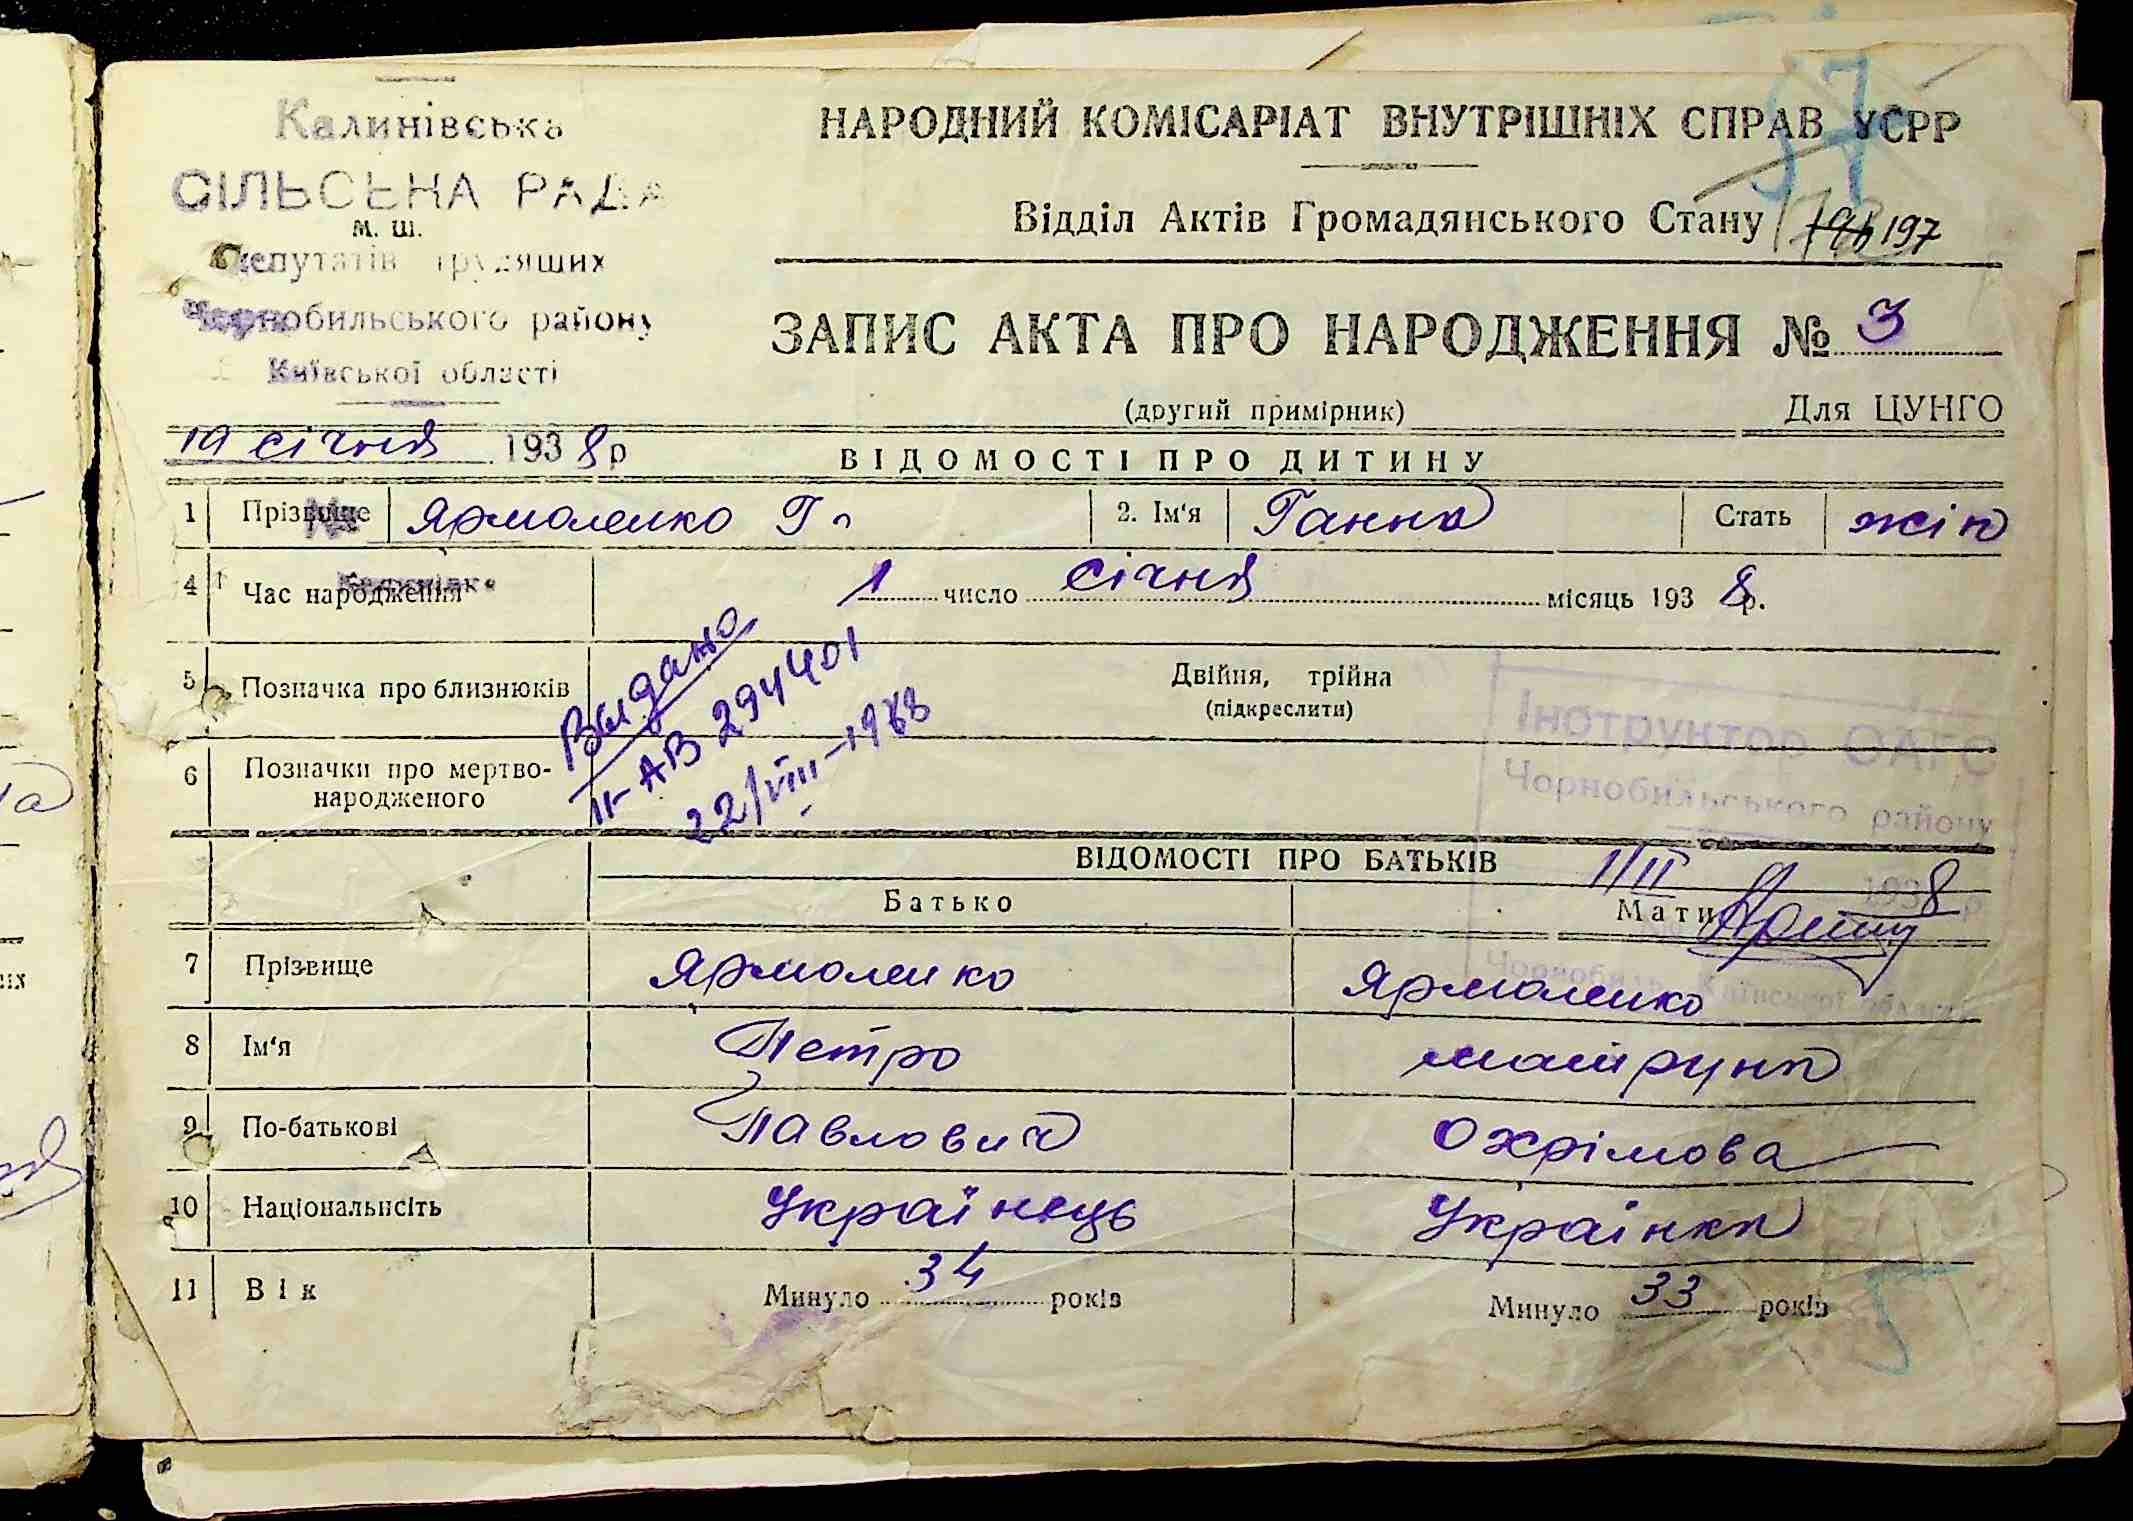 Калинівська
СІЛЬСЬКА РАДА
м. ш.
Депутатів трудящих
Чорнобильського району
Київської області
19 січня 1938р
НАРОДНИЙ КОМІСАРІАТ ВНУТРІШНІХ СПРАВ УСРР
57
Відділ Актів Громадянського Стану
197
ЗАПИС АКТА ПРО НАРОДЖЕННЯ № 3
(другий примірник) Для ЦУНГО
ВІДОМОСТІ ПРО ДИТИНУ
1 Прізвище Ярмоленко Г 2. Ім'я Ганна Стать жін
4 Час народження 1 число січня місяць 1938р.
5 Позначка про близнюків Двійня, трійна
(підкреслити)
6 Позначки про мертво-
народженого
Выдано
II-АВ 294401
22/VIII-1988
Інструктор ОАГС
Чорнобильського району
1/II 1938 р
ВІДОМОСТІ ПРО БАТЬКІВ
Батько Мати
7 Прізвище Ярмоленко Ярмоленко
8 Ім'я Петро
9 По-батькові Павлович Охрімова
10 Національність Українець Українка
11 Вік Минуло 34 років Минуло 33 років